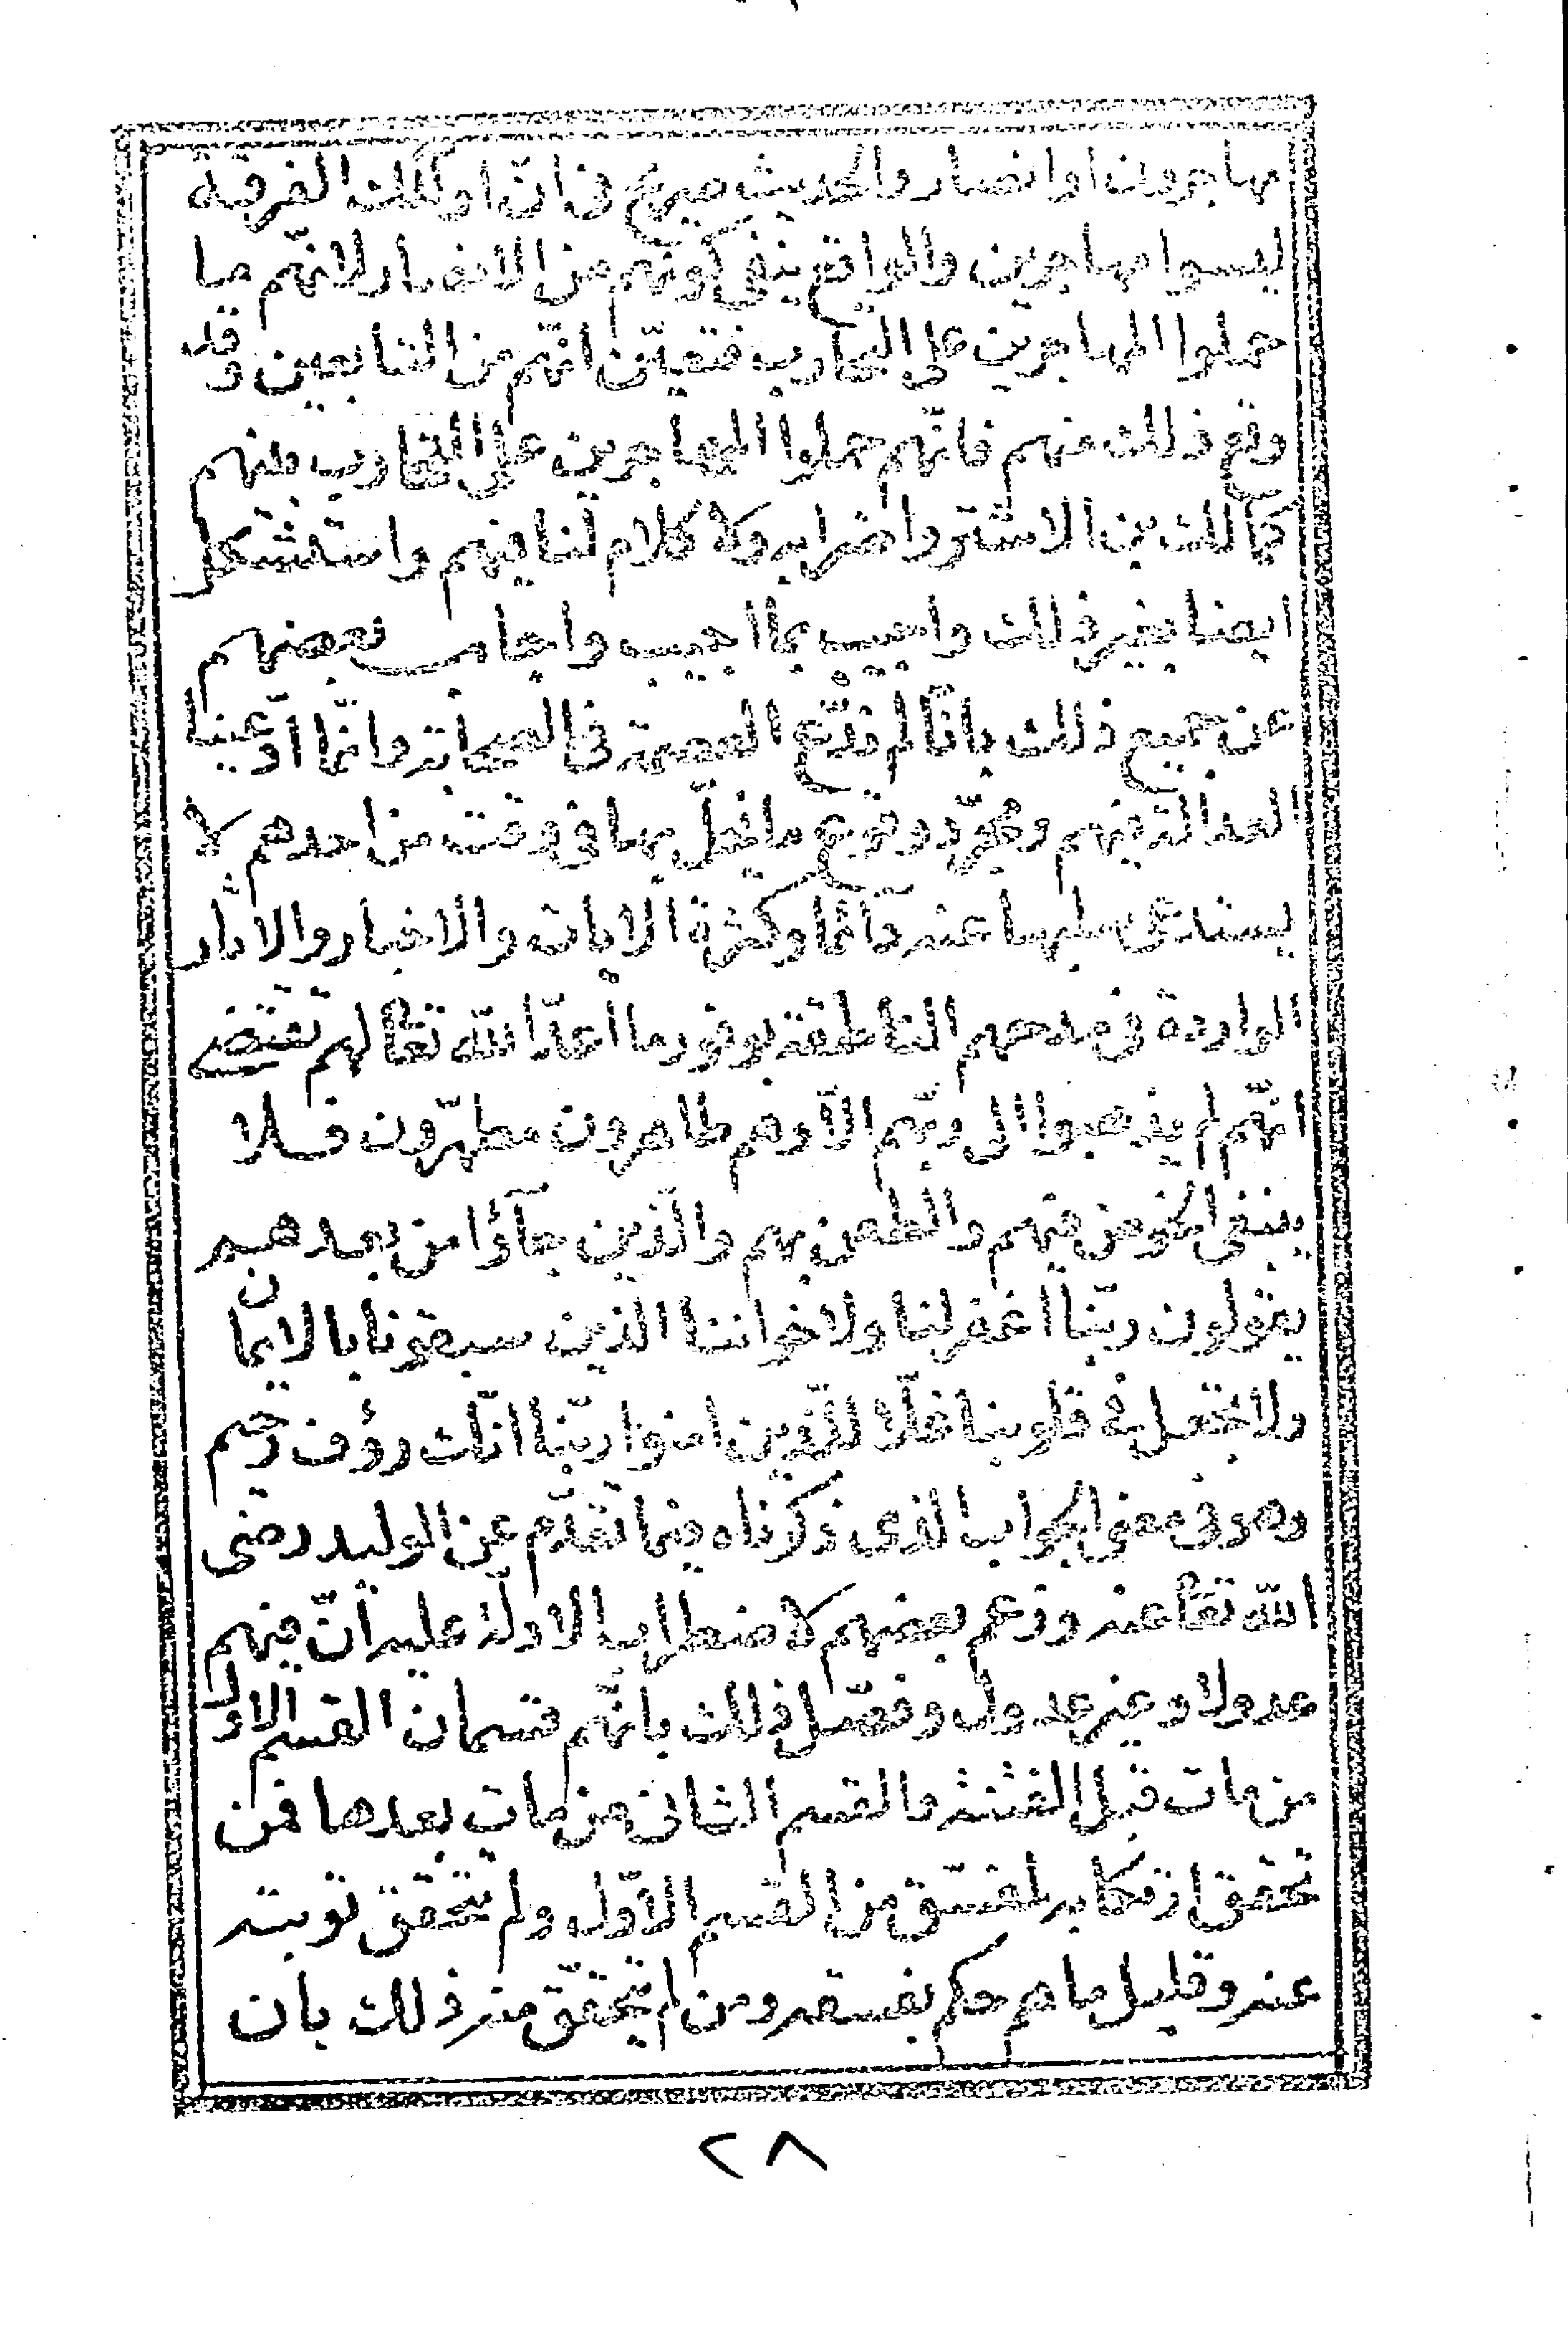 مهاجرون او انصار والحديث صريح فى انّ اولئك الفرقة
ليسوا مهاجرين والواقع ينفى كونهم من الانصار لانّهم ما
حملوا المهاجرين على التحارب فتعيّن انّهم من التابعين وقد
وقع ذلك منهم فانّهم حملوا المهاجرين على التحارب منهم
كمالك بن الاشتر واضرابه ولا كلام لنا فيهم واستشكل
ايضا بغير ذلك واجيب بما اجيب واجاب بعضهم
عن جميع ذلك بانّا لم ندّع العصمة فى الصحابة وانّما ادّعينا
العدالة فيهم ومجرّد وقوع ما يخلّ بها فى وقت من احدهم لا
يستدعى سلبها عنه دائما وكثرة الايات والاخبار والاثار
الواردة فى مدحهم الناطقة بوفور ما اعدّ الله تعالى لهم تقتضى
انّهم لم يذهبوا الى ربّهم الّا وهم طاهرون مطهّرون فلا
ينبغى الخوض فيهم والطعن بهم والّذين جآؤا من بعدهم
يقولون ربّنا اغفر لنا ولاخواننا الذين سبقونا بالايمان
ولا تجعل فى قلوبنا غلّا للّذين امنوا ربّنا انّك رؤف رحيم
وهو فى معنى الجواب الذى ذكرناه فيما تقدّم عن الوليد رضى
الله تعا عنه وزعم بعضهم لاضطراب الادلّة عليه انّ فيهم
عدولا وغير عدول وفصّل ذلك بانّهم قسمان القسم الاول
من مات قبل الفتنة والقسم الثانى من مات بعدها فمن
تحقق ارتكابه لمفسّق من القسم الاوّل ولم تتحقق توبته
عنه وقليل ما هم حكم بفسقه ومن لم يتحقّق منه ذلك بان
٢٨